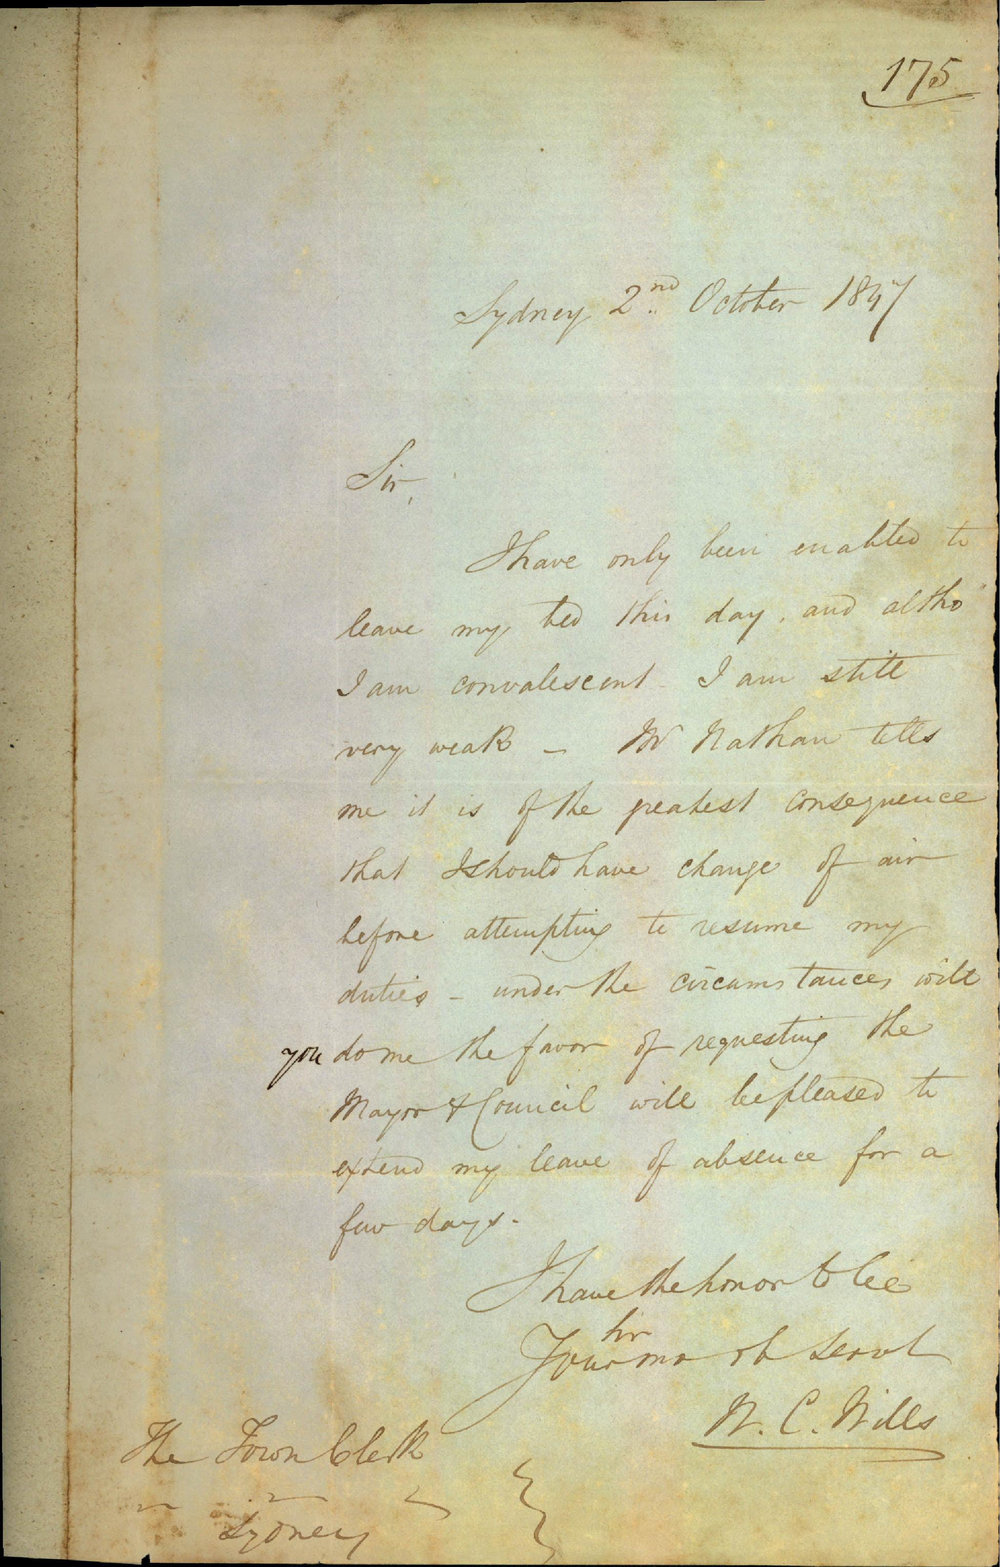 175
Sydney 2nd October 1847
Sir,
I have only been enabled to
leave my bed this day, and altho
I am convalescent - I am still
very weak - Mr Nathan tells
me it is of the greatest consequence
that I should have change of air
before attempting to resume my
duties - under the circumstances will
you do me the favor of requesting the
Mayor & Council will be pleased to
extend my leave of absence for a
few days.
I have the honor to be
Sir
Your mo ob Servt
W. C. Wills
The Town Clerk
Sydney